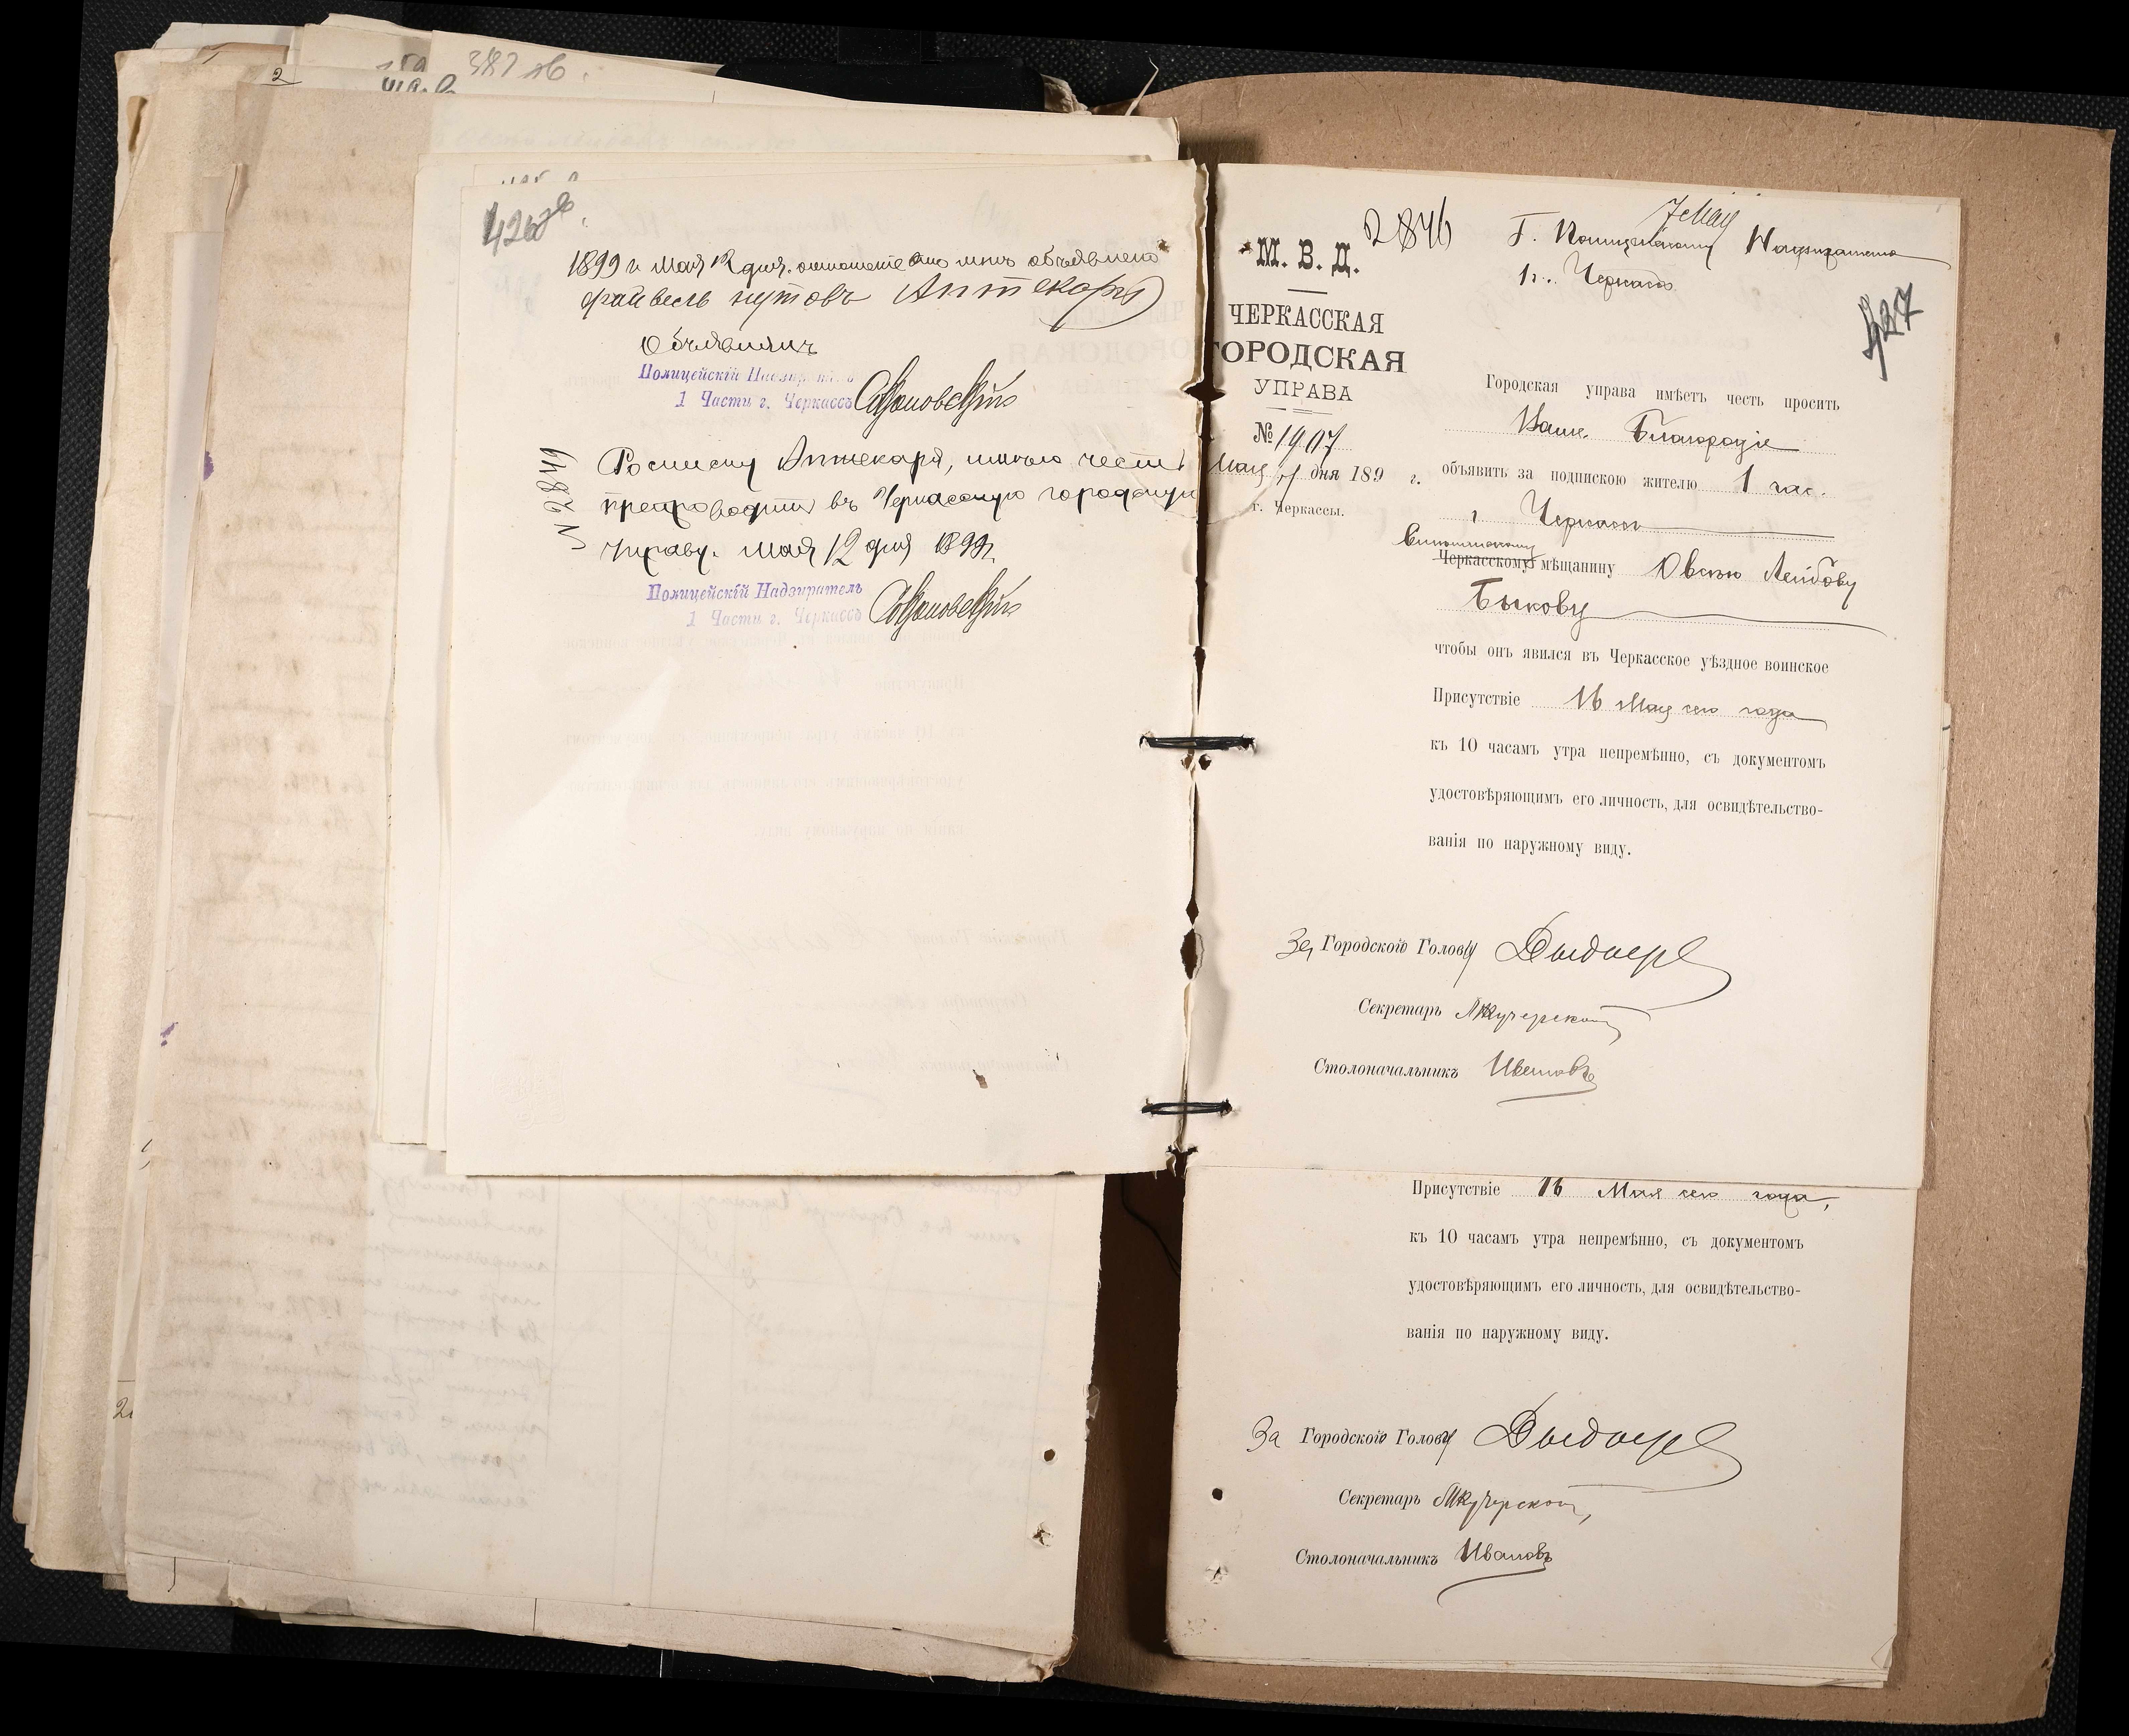 387 об.
426 об.
1899 г. мая 12 дня. отношение это мне объявлено
файвель нутовъ Аптекарь
Объявилъ
Полицейскій Надзиратель
1 Части г. Черкассъ
Росписку Аптекаря, имѣю честь
препроводить въ Черкасскую городскую
управу. мая 12 дня 1899 г.
N 2849
Полицейскій Надзиратель
1 Части г. Черкассъ
2846
7 Мая
Г. Полицейскому Надзирателю
1 ч. Черкассъ
427
М. В. Д.
ЧЕРКАССКАЯ
ГОРОДСКАЯ
УПРАВА
№ 1907
Мая дня 189 г.
г. Черкассы.
Городская управа имѣетъ честь просить
Ваше Благородіе
объявить за подпискою жителю 1 час.
г. Черкассъ
Черкасскому мѣщанину Овсѣю Лейбову
Быкову
чтобы онъ явился въ Черкасское уѣздное воинское
Присутствіе 16 Мая сего года
къ 10 часамъ утра непремѣнно, съ документомъ
удостовѣряющимъ его личность, для освидѣтельство-
ванія по наружному виду.
За Городского Голову
Секретарь
Столоначальникъ Ивановъ
Присутствіе 16 Мая сего года,
къ 10 часамъ утра непремѣнно, съ документомъ
удостовѣряющимъ его личность, для освидѣтельство-
ванія по наружному виду.
За Городского Голову
Секретарь
Столоначальникъ Ивановъ